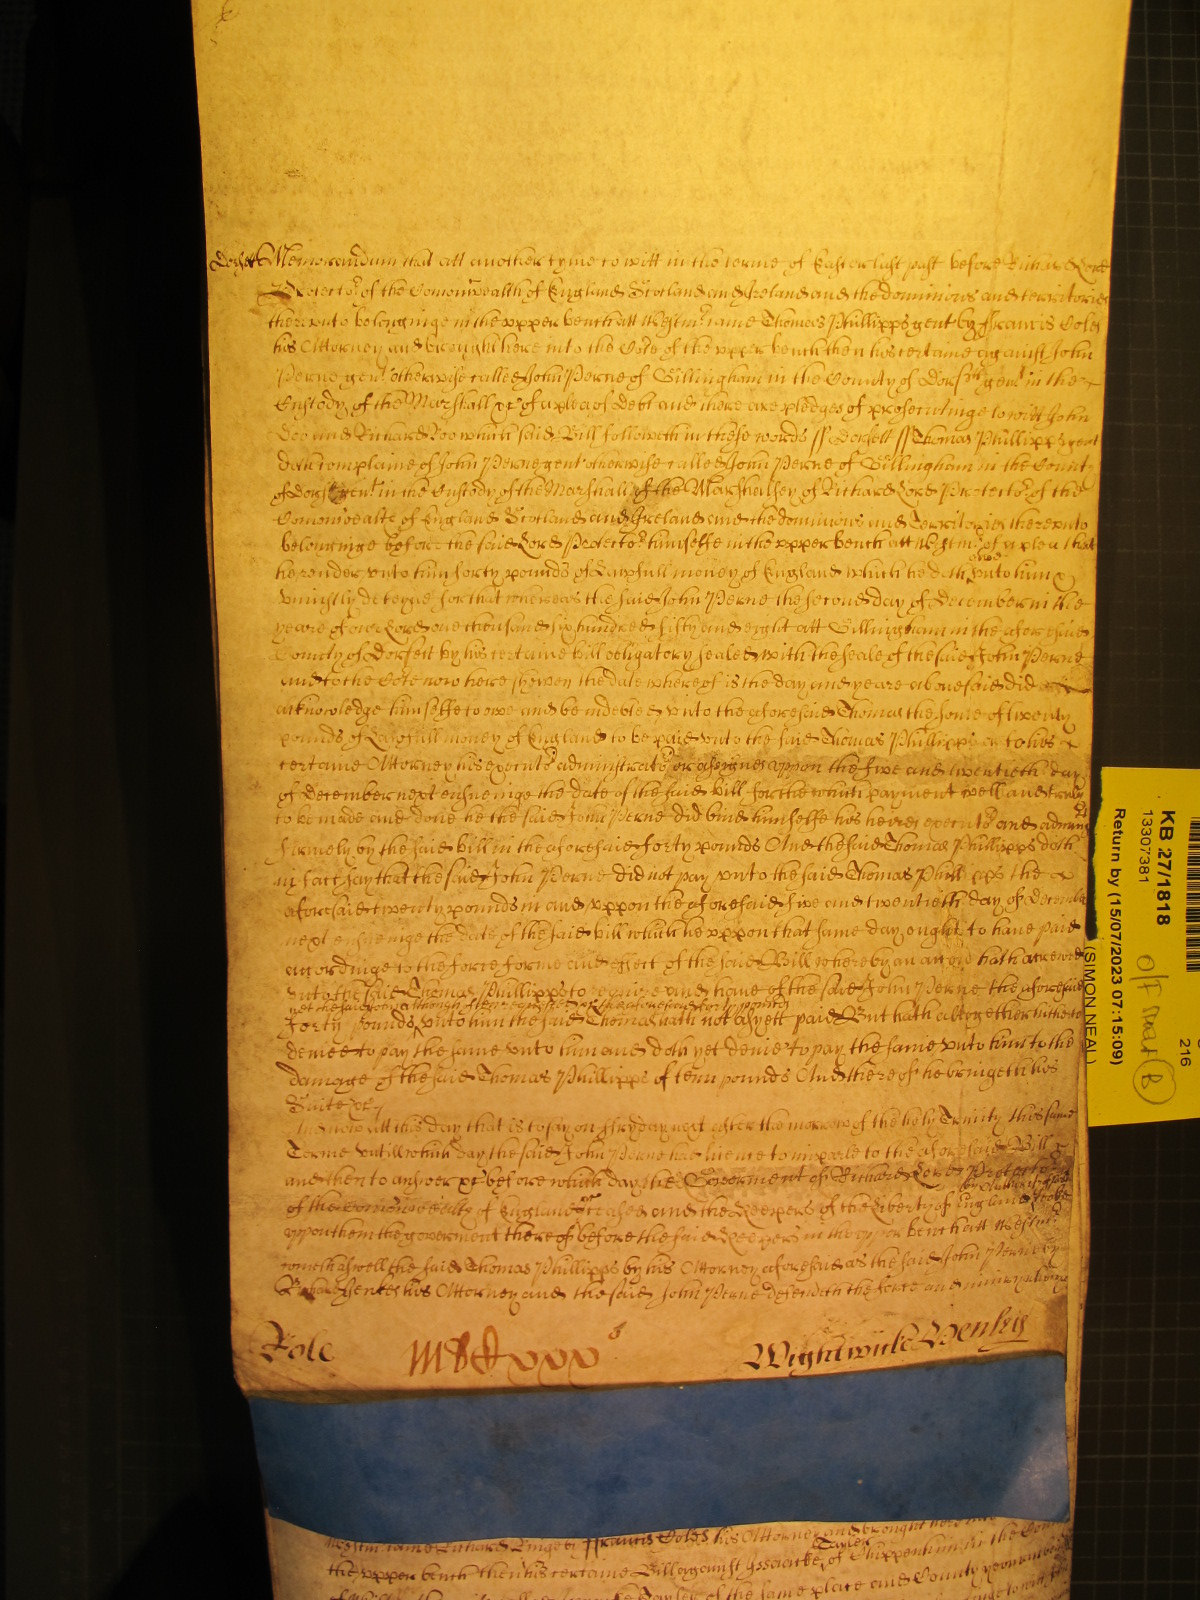 Dorsett Memorandum that att another tyme to witt in the terme of Easter last past before Richard Lord
Protector of the Comonwealth of England Scotland and Ireland and the dominions and territories
thereunto belonginge in the upper bench att Westmr came Thomas Phillipps gent by Francis Coles
his Attorney and brought here into the Cort of the upper bench then his certaine against John
Perne gent otherwise called John Perne of Gillingham in the County of Dorsett gent in the
Custody of the Marshall &c of a plea of Debt and there are pledges of prosecutinge to witt John
Doo and Richard Roo which said Bill followeth in these words ss Dorsett ss Thomas Phillipps gent
doth complaine of John Perne gent otherwise called John Perne of Gillingham in the County
of Dorsett gent in the Custody of the Marshall of the Marshalsey of Richard Lord Protector of the
Comonwealth of England Scotland and Ireland and the dominions and Territories thereunto
belonginge before the said Lord Protector himselfe in the upper bench att Westmr of a plea that
he render unto him forty pounds of Lawfull money of England which he doth owe unto him &
uniustly deteyne for that whereas the said John Perne the second day of December in the
yeare of our Lord one thousand six hundred fifty and eight att Gillingham in the aforesaid
County of Dorsett by his certaine bill obligatory sealed with the seale of the said John Perne
and to the Cort now here shewen the date whereof is the day and yeare abovesaid did
acknowledge himselfe to owe and be indebted unto the aforesaid Thomas the some of twenty
pounds of Lawfull money of England to be paid unto the said Thomas Phillipps or to his
certaine Attorney his executrs administratrs or assignes uppon the five and twentieth day
of December next ensueinge the date of the said bill for the which payment well and truly
to be made and done he the said John Perne did bind himselfe his heires executrs and admin
firmely by the said bill in the aforesaid forty pounds And the said Thomas Phillipps doth
in fact say that the said John Perne did not pay unto the said Thomas Phillipps the
aforesaid twenty pounds in and uppon the aforesaid five and twentieth day of December
next ensueinge the date of the said bill which he uppon that same day ought to have paid
accordinge to the force forme and effect of the said Bill whereby an accon hath accrewed
unto the said Thomas Phillipps to require and have of the said John Perne the aforesaid
yet the said John although often requested &c the aforesaid forty pounds
forty pounds unto him the said Thomas hath not as yett paid But hath altogether hitherto
denied to pay the same unto him and doth yet denie to pay the same unto him to the
damage of the said Thomas Phillipps of tenn pounds And thereof he bringeth his
Suite &c
And now att this day that is to say on fryday next after the morrow of the holy Trinity this same
Terme untill which day the said John Perne had licence to imparle to the aforesaid Bill
and then to answer &c before which day the Goverment of Richard Lord Protector
of the Comonwealth of England ceased and the Keepers of the Liberty of England tooke
uppon them the goverment thereof before the said Keepers in the upper bench att Westmr
cometh aswell the said Thomas Phillipps by his Attorney aforesaid as the said John Perne by
Richard his Attorney and the said John Perne defendeth the force and iniury when
Role
Wightwicke
Westmr came Richard by Francis Coles his Attorney and brought here into
Tayler
the upper bench then his certaine Bill against Isaacke of Chippenham in the County
of the same place and County yeoman
KB 27/1818
13307381
Return by (15/07/2023 07:15:09)
(SIMON NEAL)
216